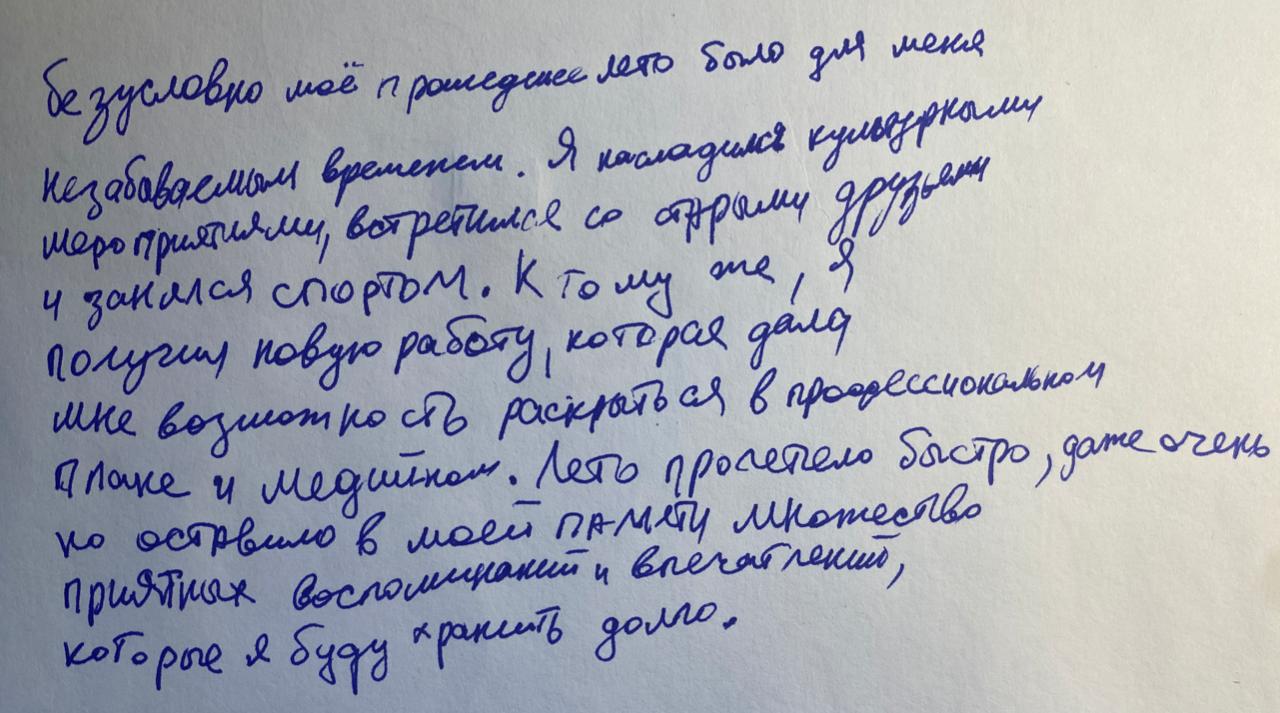 безусловно моё прошедшее лето было для меня
незабываемым временем. Я насладился культурными
мероприятиями, встретился со старыми друзьями
и занялся спортом. К тому же, я
получил новую работу, которая дала
мне возможность раскрыться в профессиональном
плане и медийном. Лето пролетело быстро, даже очень
но оставило в моей памяти множество
приятных воспоминаний и впечатлений,
которые я буду хранить долго.